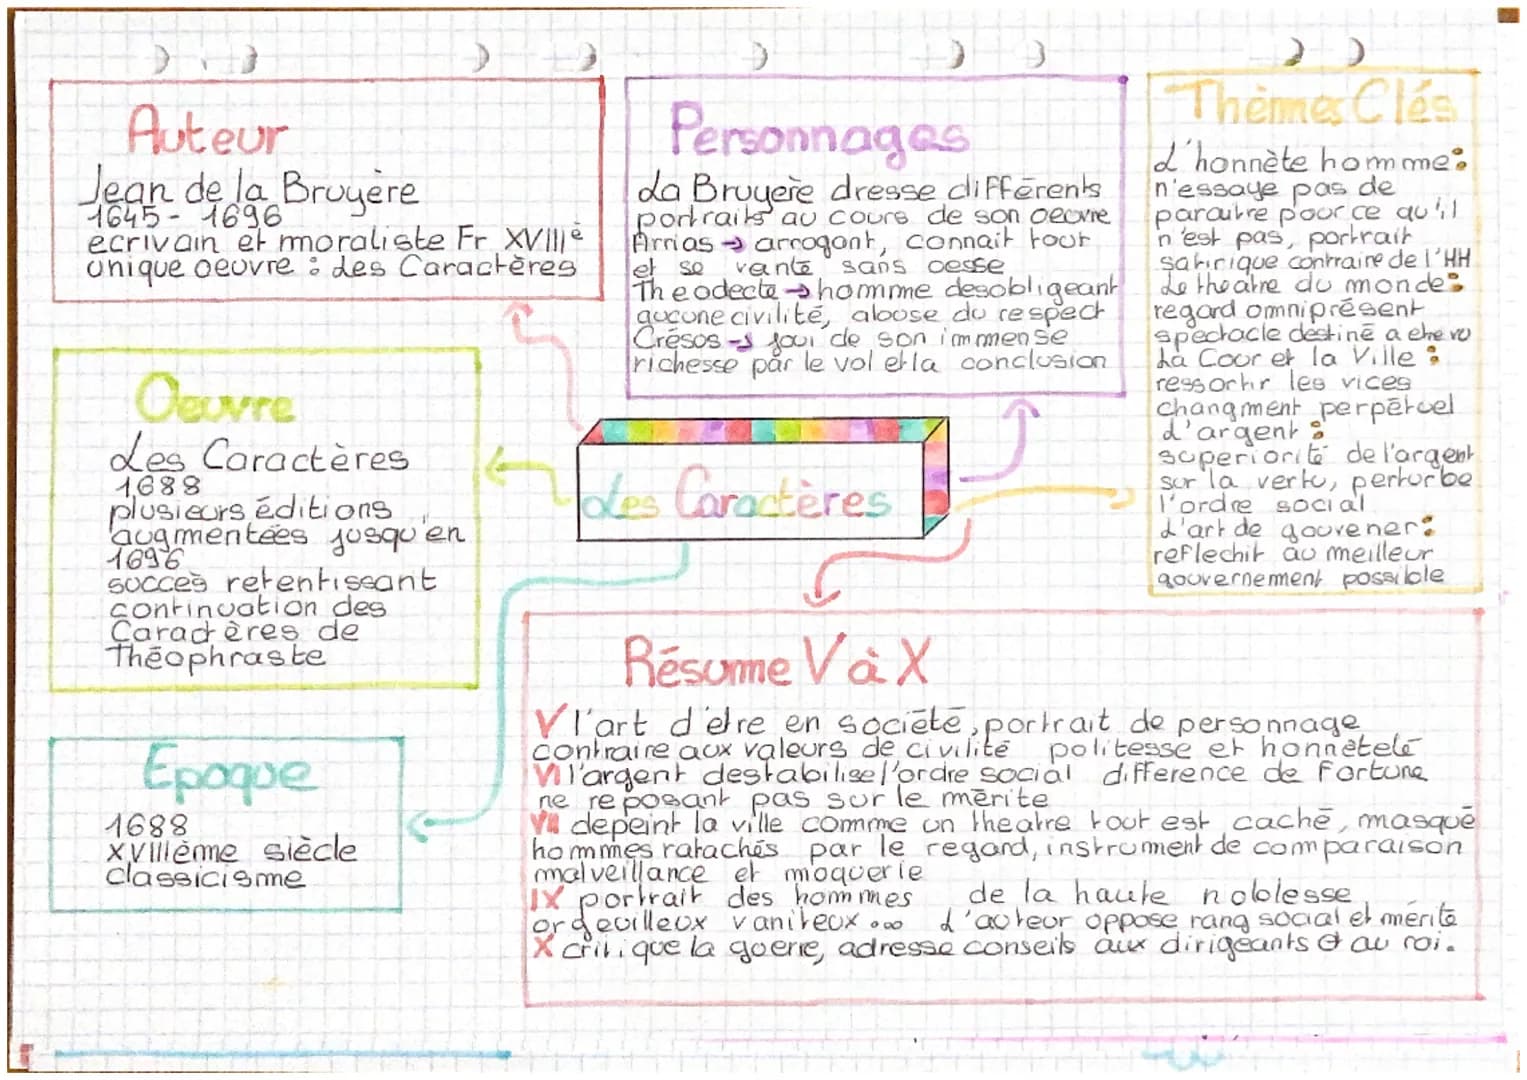 Auteur
Jean de la Bruyère
1645 - 1696
ecrivain et moraliste Fr XVIIIè
unique oeuvre : Les Caractères
Personnages
La Bruyère dresse différents
portraits au cours de son oeuvre
Arrias → arrogant, connait tout
et se vante sans cesse
Theodecte → homme desobligeant
aucune civilité, abuse du respect
Crésos → joui de son immense
richesse par le vol et la conclusion
Thèmes Clés
L'honnète homme :
n'essaye pas de
paraitre pour ce qu'il
n'est pas, portrait
satirique contraire de l'HH
Le theatre du monde :
regard omniprésent
spectacle destiné a etre vu
La Cour et la Ville :
ressortir les vices
changment perpétuel
L'argent :
superiorité de l'argent
sur la vertu, perturbe
l'ordre social
L'art de gouvener :
reflechit au meilleur
gouvernement possible
Oeuvre
Les Caractères
1688
plusieurs éditions
augmentées jusqu'en
1696
succès retentissant
continuation des
Caractères de
Théophraste
Les Caractères
Epoque
1688
XVIIIème siècle
classicisme
Résume V à X
V l'art d'etre en société, portrait de personnage
contraire aux valeurs de civilité politesse et honneteté
VI l'argent destabilise l'ordre social difference de fortune
ne reposant pas sur le mérite
VII depeint la ville comme un theatre tout est caché, masqué
hommes ratachés par le regard, instrument de comparaison
malveillance et moquerie
IX portrait des hommes de la haute noblesse
orgeuilleux vaniteux ... L'auteur oppose rang social et mérite
X critique la guerre, adresse conseils aux dirigeants et au roi.